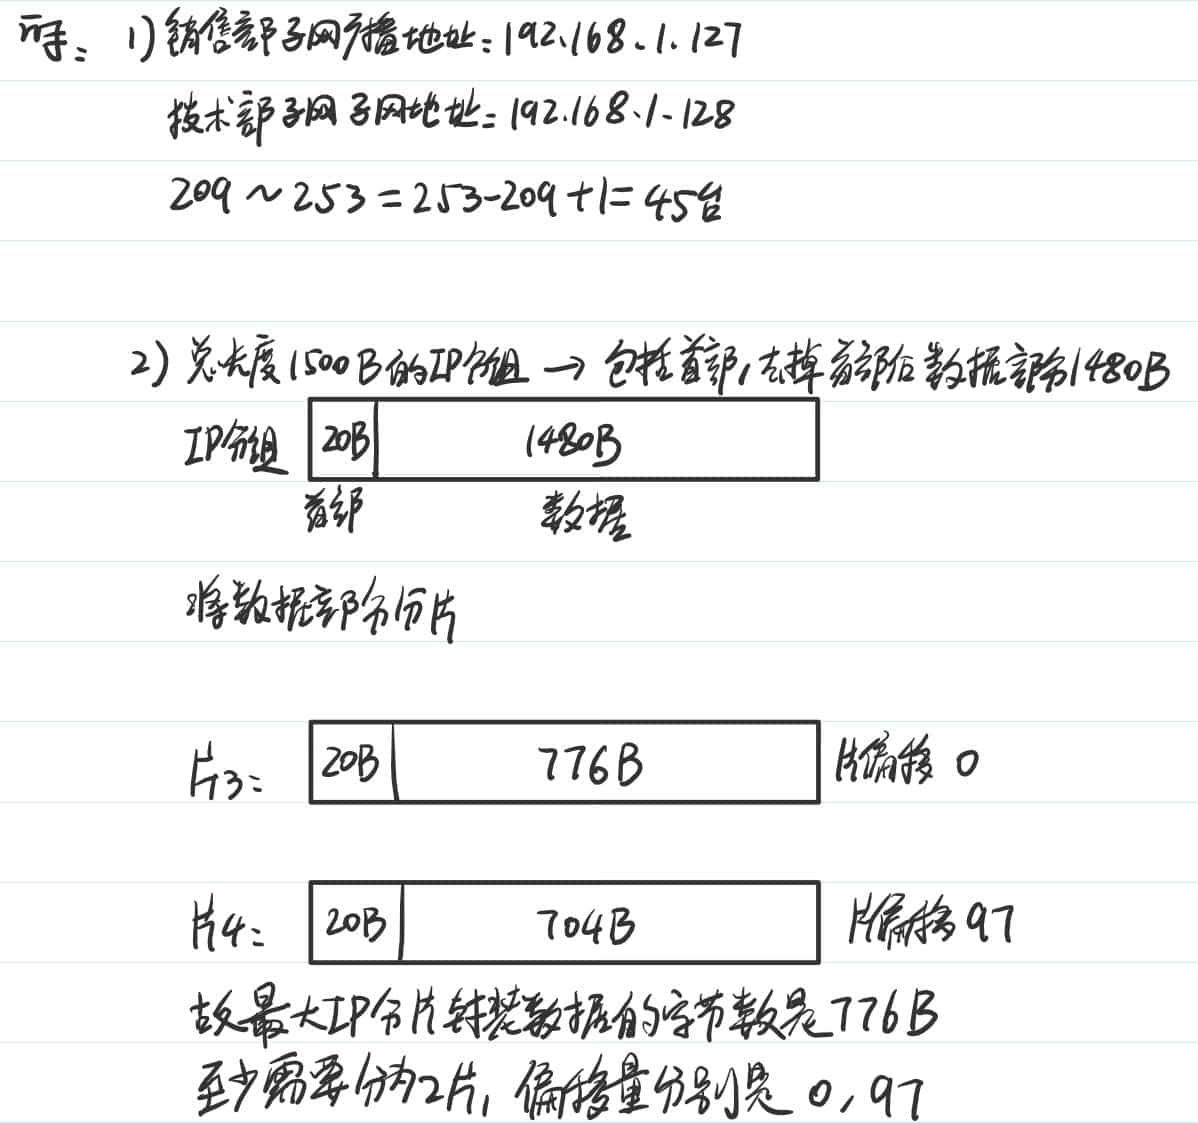 解: 1)销售部子网广播地址:192.168.1.127
技术部子网子网地址:192.168.1.128
209~253=253-209+1=45台
2)总长度1500B的IP分组→包括首部,去掉首部后数据部分1480B
IP分组 20B 1480B
首部 数据
将数据部分分片
片3: 20B 776B 片偏移 0
片4: 20B 704B 片偏移 97
故最大IP分片封装数据的字节数是776B
至少需要分为2片,偏移量分别是 0,97